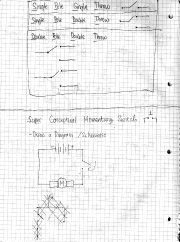 Single Pole Single Throw
Single Pole Double Throw
Double Pole Double Throw
Super Conceptual Momentary Switch
- Draw a Diagram / Schematic
M